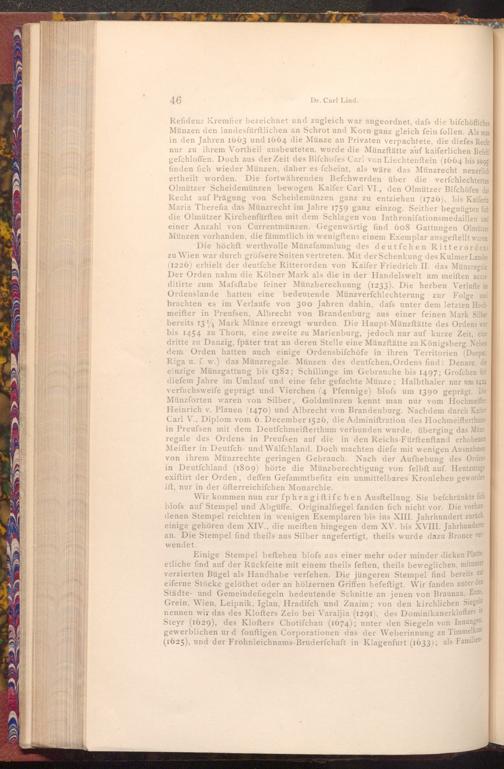 46
Dr. Carl Lind.
Reſidenz Kremſier bezeichnet und zugleich war angeordnet, daſs die biſchöflichen
Münzen den landesfürſtlichen an Schrot und Korn ganz gleich ſein ſollen. Als man
in den Jahren 1663 und 1664 die Münze an Privaten verpachtete, die dieſes Recht
nur zu ihrem Vortheil ausbeuteten, wurde die Münzſtätte auf kaiſerlichen Befehl
geſchloſſen. Doch aus der Zeit des Biſchofes Carl von Liechtenſtein (1664 bis 1695
finden ſich wieder Münzen, daher es ſcheint, als wäre das Münzrecht neuerlich
ertheilt worden. Die fortwährenden Beſchwerden über die verſchlechterten
Olmützer Scheidemünzen bewogen Kaiſer Carl VI., den Olmützer Biſchöfen das
Recht auf Prägung von Scheidemünzen ganz zu entziehen (1726), bis Kaiſerin
Maria Thereſia das Münzrecht im Jahre 1759 ganz einzog. Seither begnügten ſich
die Olmützer Kirchenfürſten mit dem Schlagen von Inthroniſationsmedaillen und
einer Anzahl von Currentmünzen. Gegenwärtig ſind 608 Gattungen Olmützer
Münzen vorhanden, die ſämmtlich in wenigſtens einem Exemplar ausgeſtellt waren
Die höchſt werthvolle Münzſammlung des deutſchen Ritterordens
zu Wien war durch gröſsere Suiten vertreten. Mit der Schenkung des Kulmer Landes
(1226) erhielt der deutſche Ritterorden von Kaiſer Friedrich II. das Münzregale.
Der Orden nahm die Kölner Mark als die in der Handelswelt am meiſten accre-
ditirte zum Maſsſtabe ſeiner Münzberechnung (1233). Die herben Verluſte im
Ordenslande hatten eine bedeutende Münzverſchlechterung zur Folge und
brachten es im Verlaufe von 300 Jahren dahin, daſs unter dem letzten Hoch-
meiſter in Preuſsen, Albrecht von Brandenburg aus einer feinen Mark Silber
bereits 13¼ Mark Münze erzeugt wurden. Die Haupt-Münzſtätte des Ordens war
bis 1454 zu Thorn, eine zweite zu Marienburg, jedoch nur auf kurze Zeit, eine
dritte zu Danzig, ſpäter trat an deren Stelle eine Münzſtätte zu Königsberg. Neben
dem Orden hatten auch einige Ordensbiſchöfe in ihren Territorien (Dorpat,
Riga u. ſ. w.) das Münzregale. Münzen des deutſchen Ordens ſind: Denare, die
einzige Münzgattung bis 1382; Schillinge im Gebrauche bis 1497; Groſchen ſeit
dieſem Jahre im Umlauf und eine ſehr geſuchte Münze; Halbthaler nur um
verſuchsweiſe geprägt und Vierchen (4 Pfennige) bloſs um 1390 geprägt. Die
Münzſorten waren von Silber, Goldmünzen kennt man nur vom Hochmeiſter
Heinrich v. Plauen (1470) und Albrecht von Brandenburg. Nachdem durch Kaiſer
Carl V., Diplom vom 6. December 1526, die Adminiſtration des Hochmeiſterthums
in Preuſsen mit dem Deutſchmeiſterthum verbunden wurde, überging das Münz-
regale des Ordens in Preuſsen auf die in den Reichs-Fürſtenſtand erhobenen
Meiſter in Deutſch- und Wälſchland. Doch machten dieſe mit wenigen Ausnahmen
von ihrem Münzrechte geringen Gebrauch. Nach der Aufhebung des Ordens
in Deutſchland (1809) hörte die Münzberechtigung von ſelbſt auf. Heutzutage
exiſtirt der Orden, deſſen Geſammtbeſitz ein unmittelbares Kronlehen geworden
iſt, nur in der öſterreichiſchen Monarchie.
Wir kommen nun zur ſphragiſtiſchen Ausſtellung. Sie beſchränkte ſich
bloſs auf Stempel und Abgüſſe. Originalſiegel fanden ſich nicht vor. Die vorhan-
denen Stempel reichten in wenigen Exemplaren bis ins XIII. Jahrhundert zurück,
einige gehören dem XIV., die meiſten hingegen dem XV. bis XVIII. Jahrhunderte
an. Die Stempel ſind theils aus Silber angefertigt, theils wurde dazu Bronce ver-
wendet.
Einige Stempel beſtehen bloſs aus einer mehr oder minder dicken Platte,
etliche ſind auf der Rückſeite mit einem theils feſten, theils beweglichen, mitunter
verzierten Bügel als Handhabe verſehen. Die jüngeren Stempel ſind bereits auf
eiſerne Stöcke gelöthet oder an hölzernen Griffen befeſtigt. Wir fanden unter den
Städte- und Gemeindeſiegeln bedeutende Schnitte an jenen von Braunau, Enns,
Grein, Wien, Leipnik, Iglau, Hradiſch und Znaim; von den kirchlichen Siegeln
nennen wir das des Kloſters Zelo bei Varaljia (1291), des Dominikanerkloſters in
Steyr (1629), des Kloſters Chotiſchau (1674); unter den Siegeln von Innungen,
gewerblichen und ſonſtigen Corporationen das der Weberinnung zu
(1625), und der Frohnleichnams-Bruderſchaft in Klagenfurt (1633); als Familien-